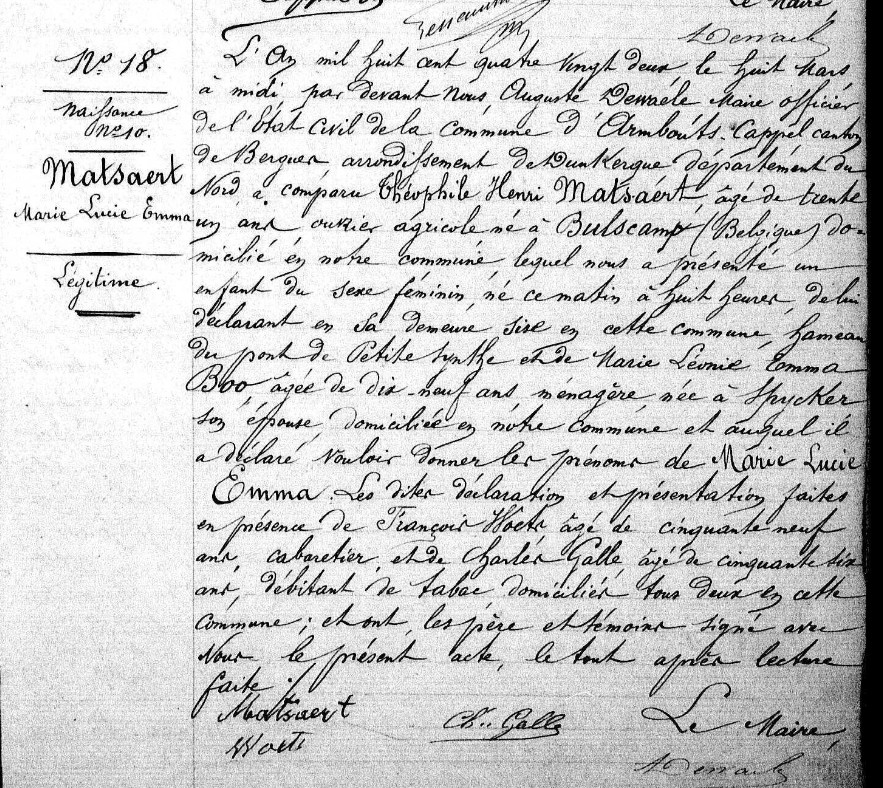 Le Maire,
Nº 18.
Naissance
Nº 10.
Matsaert
Marie Lucie Emma
Légitime.
L'An mil huit cent quatre vingt deux, le huit Mars
à midi par devant Nous, Auguste Dewaéle Maire officier
de l'État Civil de la Commune d'Armbouts-Cappel canton
de Bergues arrondissement de Dunkerque département du
Nord, a comparu Théophile Henri Matsaert, âgé de trente
un ans ouvrier agricole né à Bulscamp (Belgique) do=
micilié en notre commune lequel nous a présenté un
enfant du sexe féminin, né ce matin à huit heures, de lui
déclarant en sa demeure sise en cette commune, hameau
du pont de Petite Synthe et de Marie Léonie Emma
Boo, âgée de dix-neuf ans, ménagère née à Spycker
son épouse, domiciliée en notre commune et auquel il
a déclaré vouloir donner les prénoms de Marie Lucie
Emma. Les dites déclaration et présentation faites
en présence de François Woets âgé de cinquante neuf
ans, cabaretier, et de Charles Galle, âgé de cinquante six
ans, débitant de tabac domiciliés tous deux en cette
commune; et ont, les père et témoins signé avec
Nous le présent acte, le tout après lecture
faite.
Matsaert
Ch. Galle
Le Maire,
Woets
Dewaele